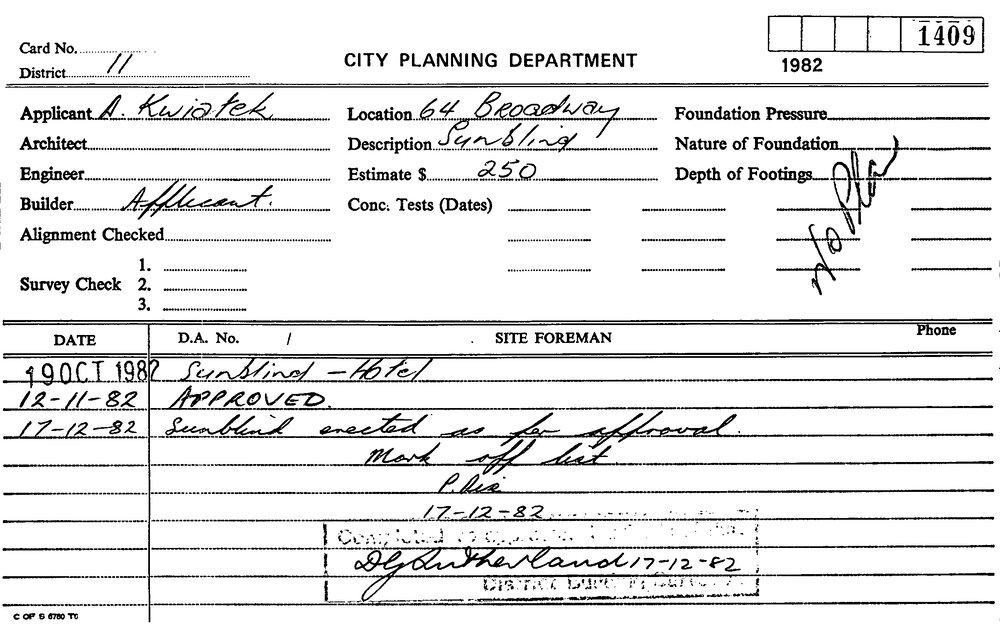 Card No.
1409
District 11
CITY PLANNING DEPARTMENT
1982
Applicant A. Kwiatek
Location 64 Broadway
Foundation Pressure
Architect
Description Sunblind
Nature of Foundation
Engineer
Estimate $ 250
Depth of Footings
No Plan
Builder Applicant.
Conc. Tests (Dates)
Alignment Checked
Survey Check
1.
2.
3.
DATE D.A. No. / SITE FOREMAN Phone
19 OCT 1982 Sunblind - Hotel
12-11-82 APPROVED.
17-12-82 Sunblind erected as per approval.
Mark off list
17-12-82
Completed
DG Sutherland 17-12-82
District Building Surveyor
C OF S 6780 TC